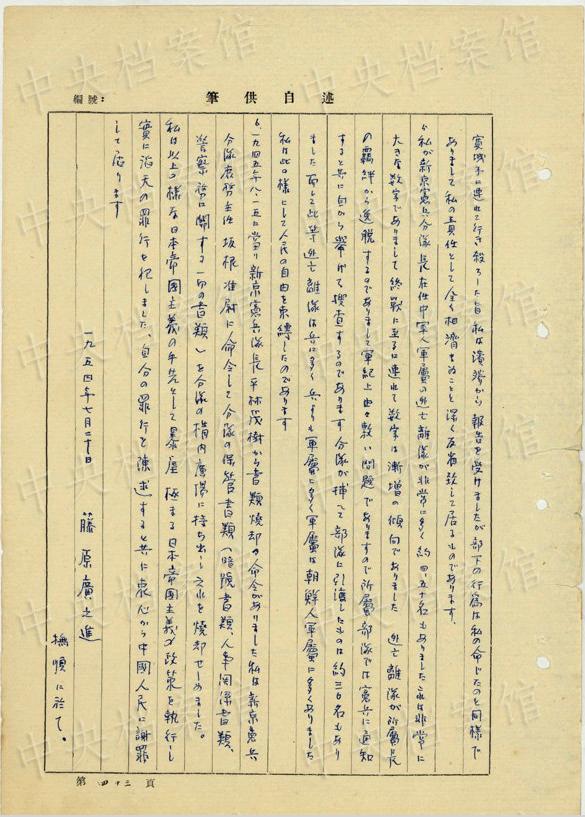 編號：
述自供筆
寛城子に連れて行き殺ろした旨私は濱から報告を受けましたが部下の行為は私の命じたのと同様で
ありまして私の責任として全く相済まぬことと深く反省致して居るものであります。
5 私が新京憲兵分隊長在任中軍人軍属の逃亡離隊が非常に多く約四、五十名もありました これは非常に
大きな数字でありまして終戦に至るに連れて数字は漸増の傾向でありました 逃亡離隊が所属長
の覊絆から逸脱するのでありまして軍紀上由々敷い問題でありますので所属部隊では憲兵に通知
すると共に自から挙げて捜査するのであります 分隊が捕へて部隊に引渡したものは約三〇名もあり
ました 而して此等逃亡離隊は兵に多く 兵よりも軍属に多く軍属は朝鮮人軍属に多くありました
私は此の様にして人民の自由を束縛したのであります
6、一九四五年八、一五に当り新京憲兵隊長平林茂樹から書類焼却の命令がありました私は新京憲兵
分隊庶務主任坂根准尉に命令して分隊の保管書類（暗號書類、人事関係書類、
警察務に関する一切の書類）を分隊の構内廣場に持ち出し之れを焼却せしめました。
私は以上の様な日本帝國主義の手先として暴虐極まる日本帝國主義の政策を執行し
実に滔天の罪行を犯しました、自分の罪行を陳述すると共に衷心から中國人民に謝罪
して居ります
一九五四年七月二十日
藤原廣之進
撫順に於て。
第四十三頁
中央档案馆